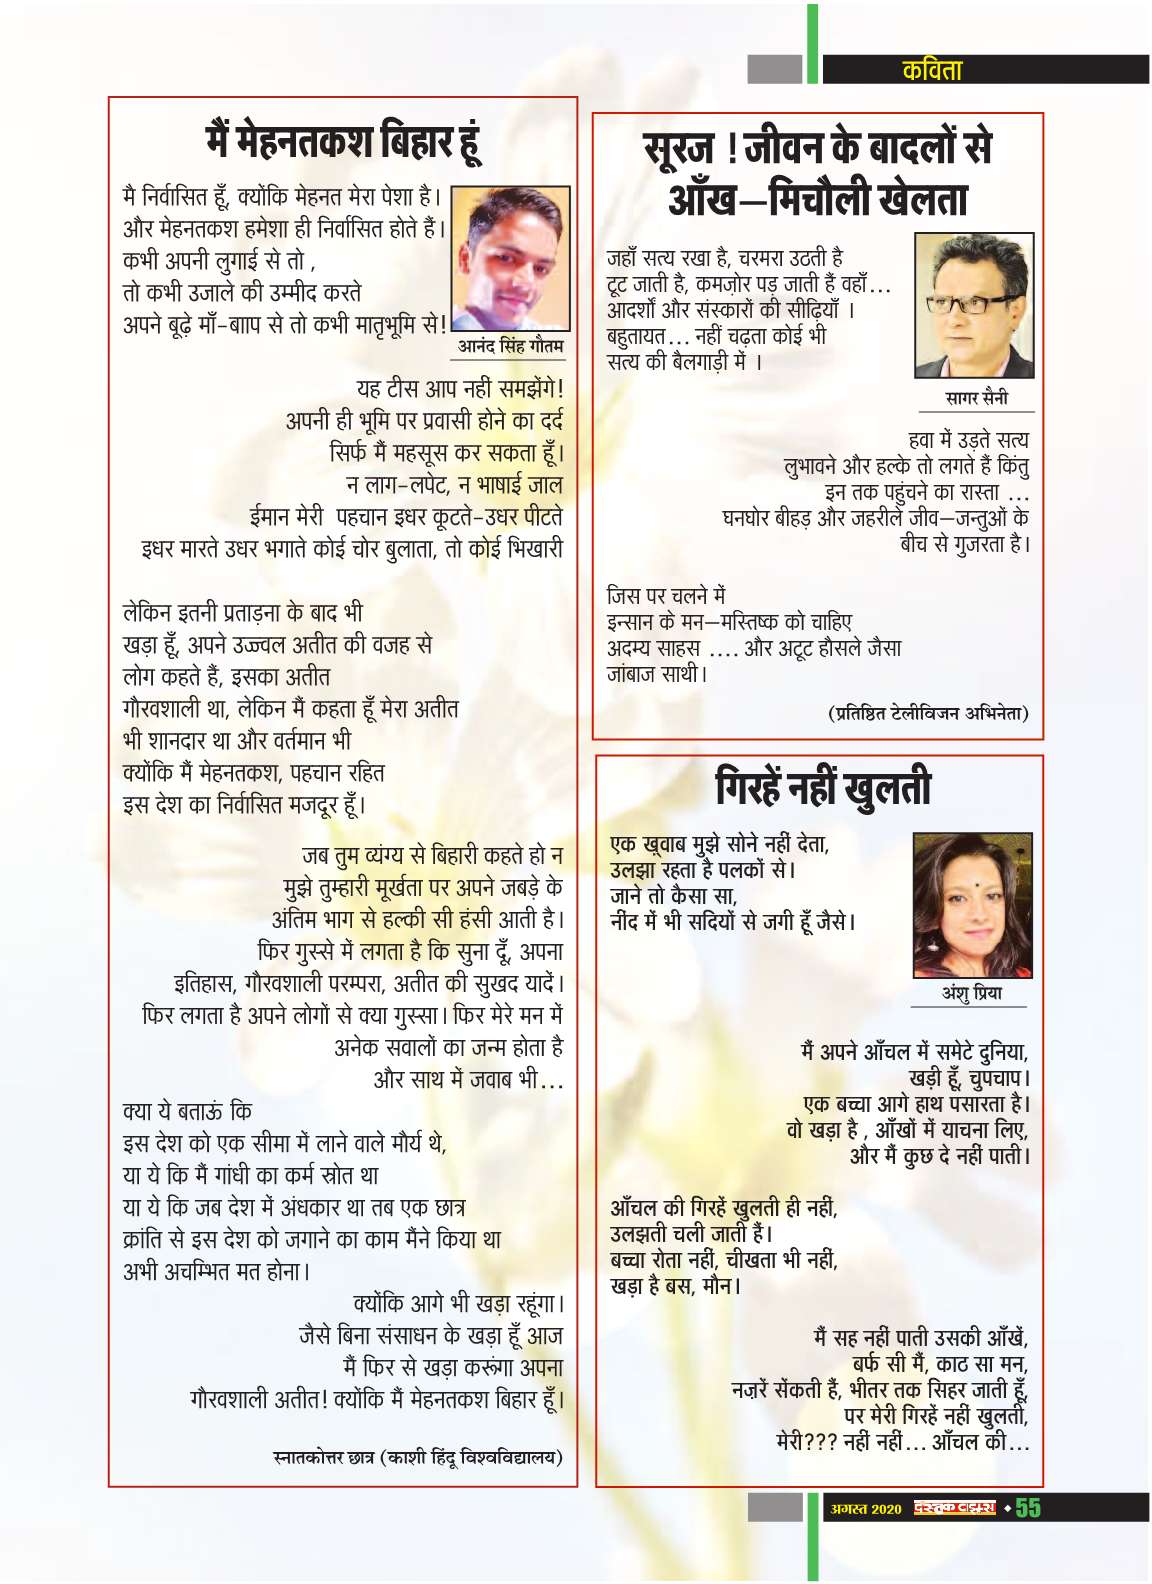 कविता
मैं मेहनतकश बिहार हूं
मै निर्वासित हूँ, क्योंकि मेहनत मेरा पेशा है।
और मेहनतकश हमेशा ही निर्वासित होते हैं।
कभी अपनी लुगाई से तो ,
तो कभी उजाले की उम्मीद करते
अपने बूढ़े माँ-बााप से तो कभी मातृभूमि से!
आनंद सिंह गौतम
यह टीस आप नहीं समझेंगे!
अपनी ही भूमि पर प्रवासी होने का दर्द
सिर्फ मैं महसूस कर सकता हूँ।
न लाग-लपेट, न भाषाई जाल
ईमान मेरी पहचान इधर कूटते-उधर पीटते
इधर मारते उधर भगाते कोई चोर बुलाता, तो कोई भिखारी
लेकिन इतनी प्रताड़ना के बाद भी
खड़ा हूँ, अपने उज्ज्वल अतीत की वजह से
लोग कहते हैं, इसका अतीत
गौरवशाली था, लेकिन मैं कहता हूँ मेरा अतीत
भी शानदार था और वर्तमान भी
क्योंकि मैं मेहनतकश, पहचान रहित
इस देश का निर्वासित मजदूर हूँ।
जब तुम व्यंग्य से बिहारी कहते हो न
मुझे तुम्हारी मूर्खता पर अपने जबड़े के
अंतिम भाग से हल्की सी हंसी आती है।
फिर गुस्से में लगता है कि सुना दूँ, अपना
इतिहास, गौरवशाली परम्परा, अतीत की सुखद यादें।
फिर लगता है अपने लोगों से क्या गुस्सा। फिर मेरे मन में
अनेक सवालों का जन्म होता है
और साथ में जवाब भी...
क्या ये बताऊं कि
इस देश को एक सीमा में लाने वाले मौर्य थे,
या ये कि मैं गांधी का कर्म स्रोत था
या ये कि जब देश में अंधकार था तब एक छात्र
क्रांति से इस देश को जगाने का काम मैंने किया था
अभी अचम्भित मत होना।
क्योंकि आगे भी खड़ा रहूंगा।
जैसे बिना संसाधन के खड़ा हूँ आज
मैं फिर से खड़ा करूंगा अपना
गौरवशाली अतीत! क्योंकि मैं मेहनतकश बिहार हूँ।
स्नातकोत्तर छात्र (काशी हिंदू विश्वविद्यालय)
सूरज ! जीवन के बादलों से
आँख–मिचौली खेलता
जहाँ सत्य रखा है, चरमरा उठती है
टूट जाती है, कमज़ोर पड़ जाती हैं वहाँ...
आदर्शों और संस्कारों की सीढ़ियाँ ।
बहुतायत... नहीं चढ़ता कोई भी
सत्य की बैलगाड़ी में ।
सागर सैनी
हवा में उड़ते सत्य
लुभावने और हल्के तो लगते हैं किंतु
इन तक पहुंचने का रास्ता ...
घनघोर बीहड़ और जहरीले जीव–जन्तुओं के
बीच से गुजरता है।
जिस पर चलने में
इन्सान के मन–मस्तिष्क को चाहिए
अदम्य साहस .... और अटूट हौसले जैसा
जांबाज साथी।
(प्रतिष्ठित टेलीविजन अभिनेता)
गिरहें नहीं खुलती
एक ख़्वाब मुझे सोने नहीं देता,
उलझा रहता है पलकों से।
जाने तो कैसा सा,
नींद में भी सदियों से जगी हूँ जैसे।
अंशु प्रिया
मैं अपने आँचल में समेटे दुनिया,
खड़ी हूँ, चुपचाप।
एक बच्चा आगे हाथ पसारता है।
वो खड़ा है , आँखों में याचना लिए,
और मैं कुछ दे नहीं पाती।
आँचल की गिरहें खुलती ही नहीं,
उलझती चली जाती हैं।
बच्चा रोता नहीं, चीखता भी नहीं,
खड़ा है बस, मौन।
मैं सह नहीं पाती उसकी आँखें,
बर्फ सी मैं, काठ सा मन,
नज़रें सेंकती हैं, भीतर तक सिहर जाती हूँ,
पर मेरी गिरहें नहीं खुलती,
मेरी??? नहीं नहीं... आँचल की...
अगस्त 2020 दस्तक टाइम्स ◆ 55